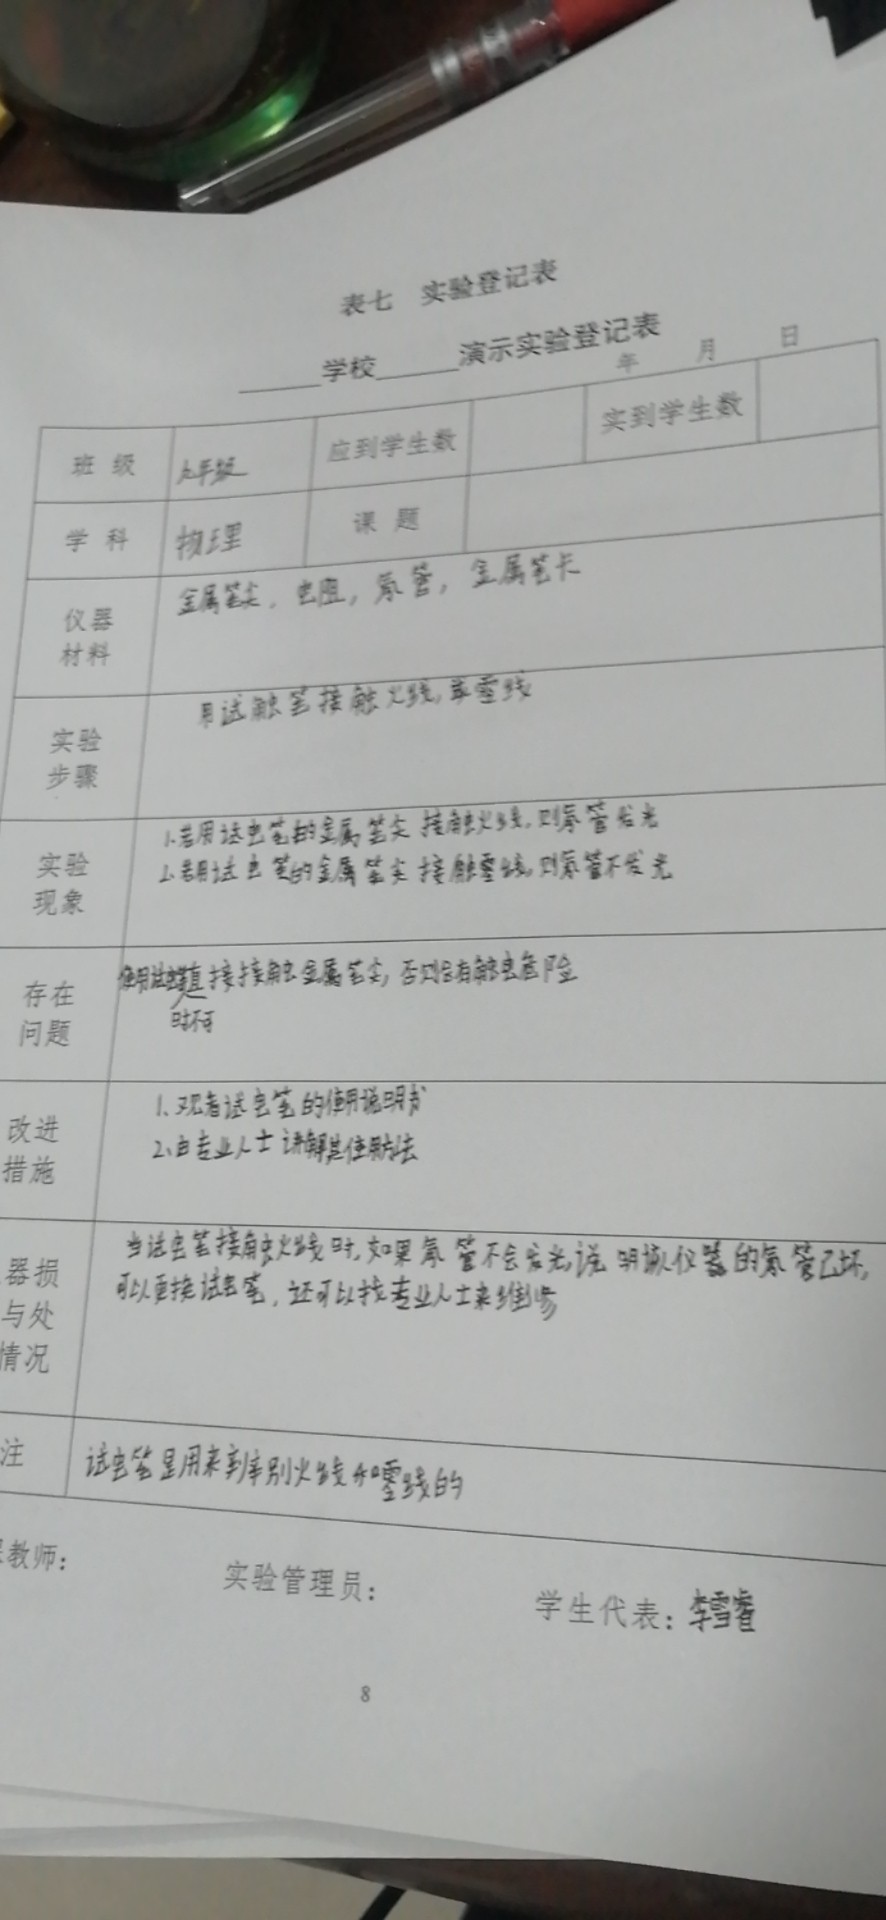 表七 实验登记表
______学校______演示实验登记表
年 月 日
班 级 九年级 应到学生数 实到学生数
学 科 物理 课 题
仪器材料 金属笔尖，电阻，氖管，金属笔卡
实验步骤 用试触笔接触火线，零线
实验现象 1.若用试电笔的金属笔尖接触火线，则氖管发光
2.若用试电笔的金属笔尖接触零线，则氖管不发光
存在问题 使用试电笔直接接触金属笔尖，否则会有触电危险
时不可
改进措施 1、观看试电笔的使用说明书
2、由专业人士讲解其使用方法
器损与处情况 当试电笔接触火线时，如果氖管不会发光，说明该仪器的氖管已坏，
可以更换试电笔，还可以找专业人士来维修
注 试电笔是用来判别火线和零线的
教师： 实验管理员： 学生代表：李雪睿
8